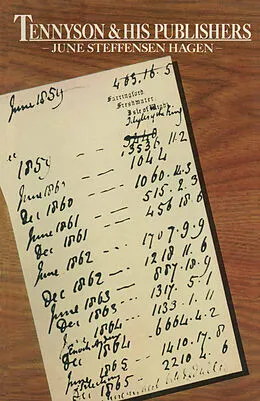 TENNYSON & HIS PUBLISHERS
– JUNE STEFFENSEN HAGEN –
June 1859 463.16.5
Farringford
Freshwater
Isle of Wight
Idylls of the King
1859
11.2
1044
June 1860 — 1060.
Dec 1860 — 515.2.3
June 1861 — 456.18.6
Dec 1861
June 1862 — 1707.9.9
Dec 1862 — 1218.11.6
June 1863 — 887.18.9
Dec 1863 — 1317.5.1
1864 — 1133.1.11
Enoch Arden
Dec 1864 6664.4.2
June 1865 1410.17.8
Selection
Dec 1865 2210.4.6